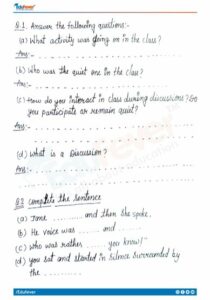 Edufever
Q.1. Answer the following questions:-
(a) What activity was going on in the class?
Ans:-
(b) Who was the quiet one in the class?
Ans:-
(c) How do you interact in class during discussions? Do
you participate or remain quiet?
Ans:-
(d) What is a Discussion?
Ans:-
Q.2 Complete the sentence
(a) Jane ......... and then she spoke.
(b) He voice was ....... and .......
(c) Who was rather ........ you know!
(d) You sat and started in silence surrounded by
the ..........
Edufever